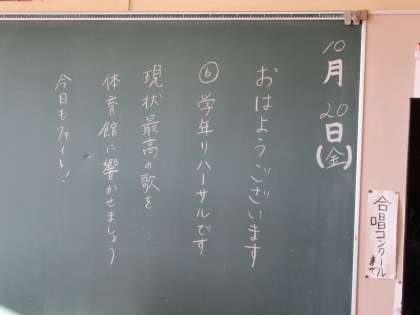 10月20日(金)
おはようございます
⑥学年リハーサルです
現状最高の歌を
体育館に響かせましょう
今日もファイト!
合唱コンクール
まで